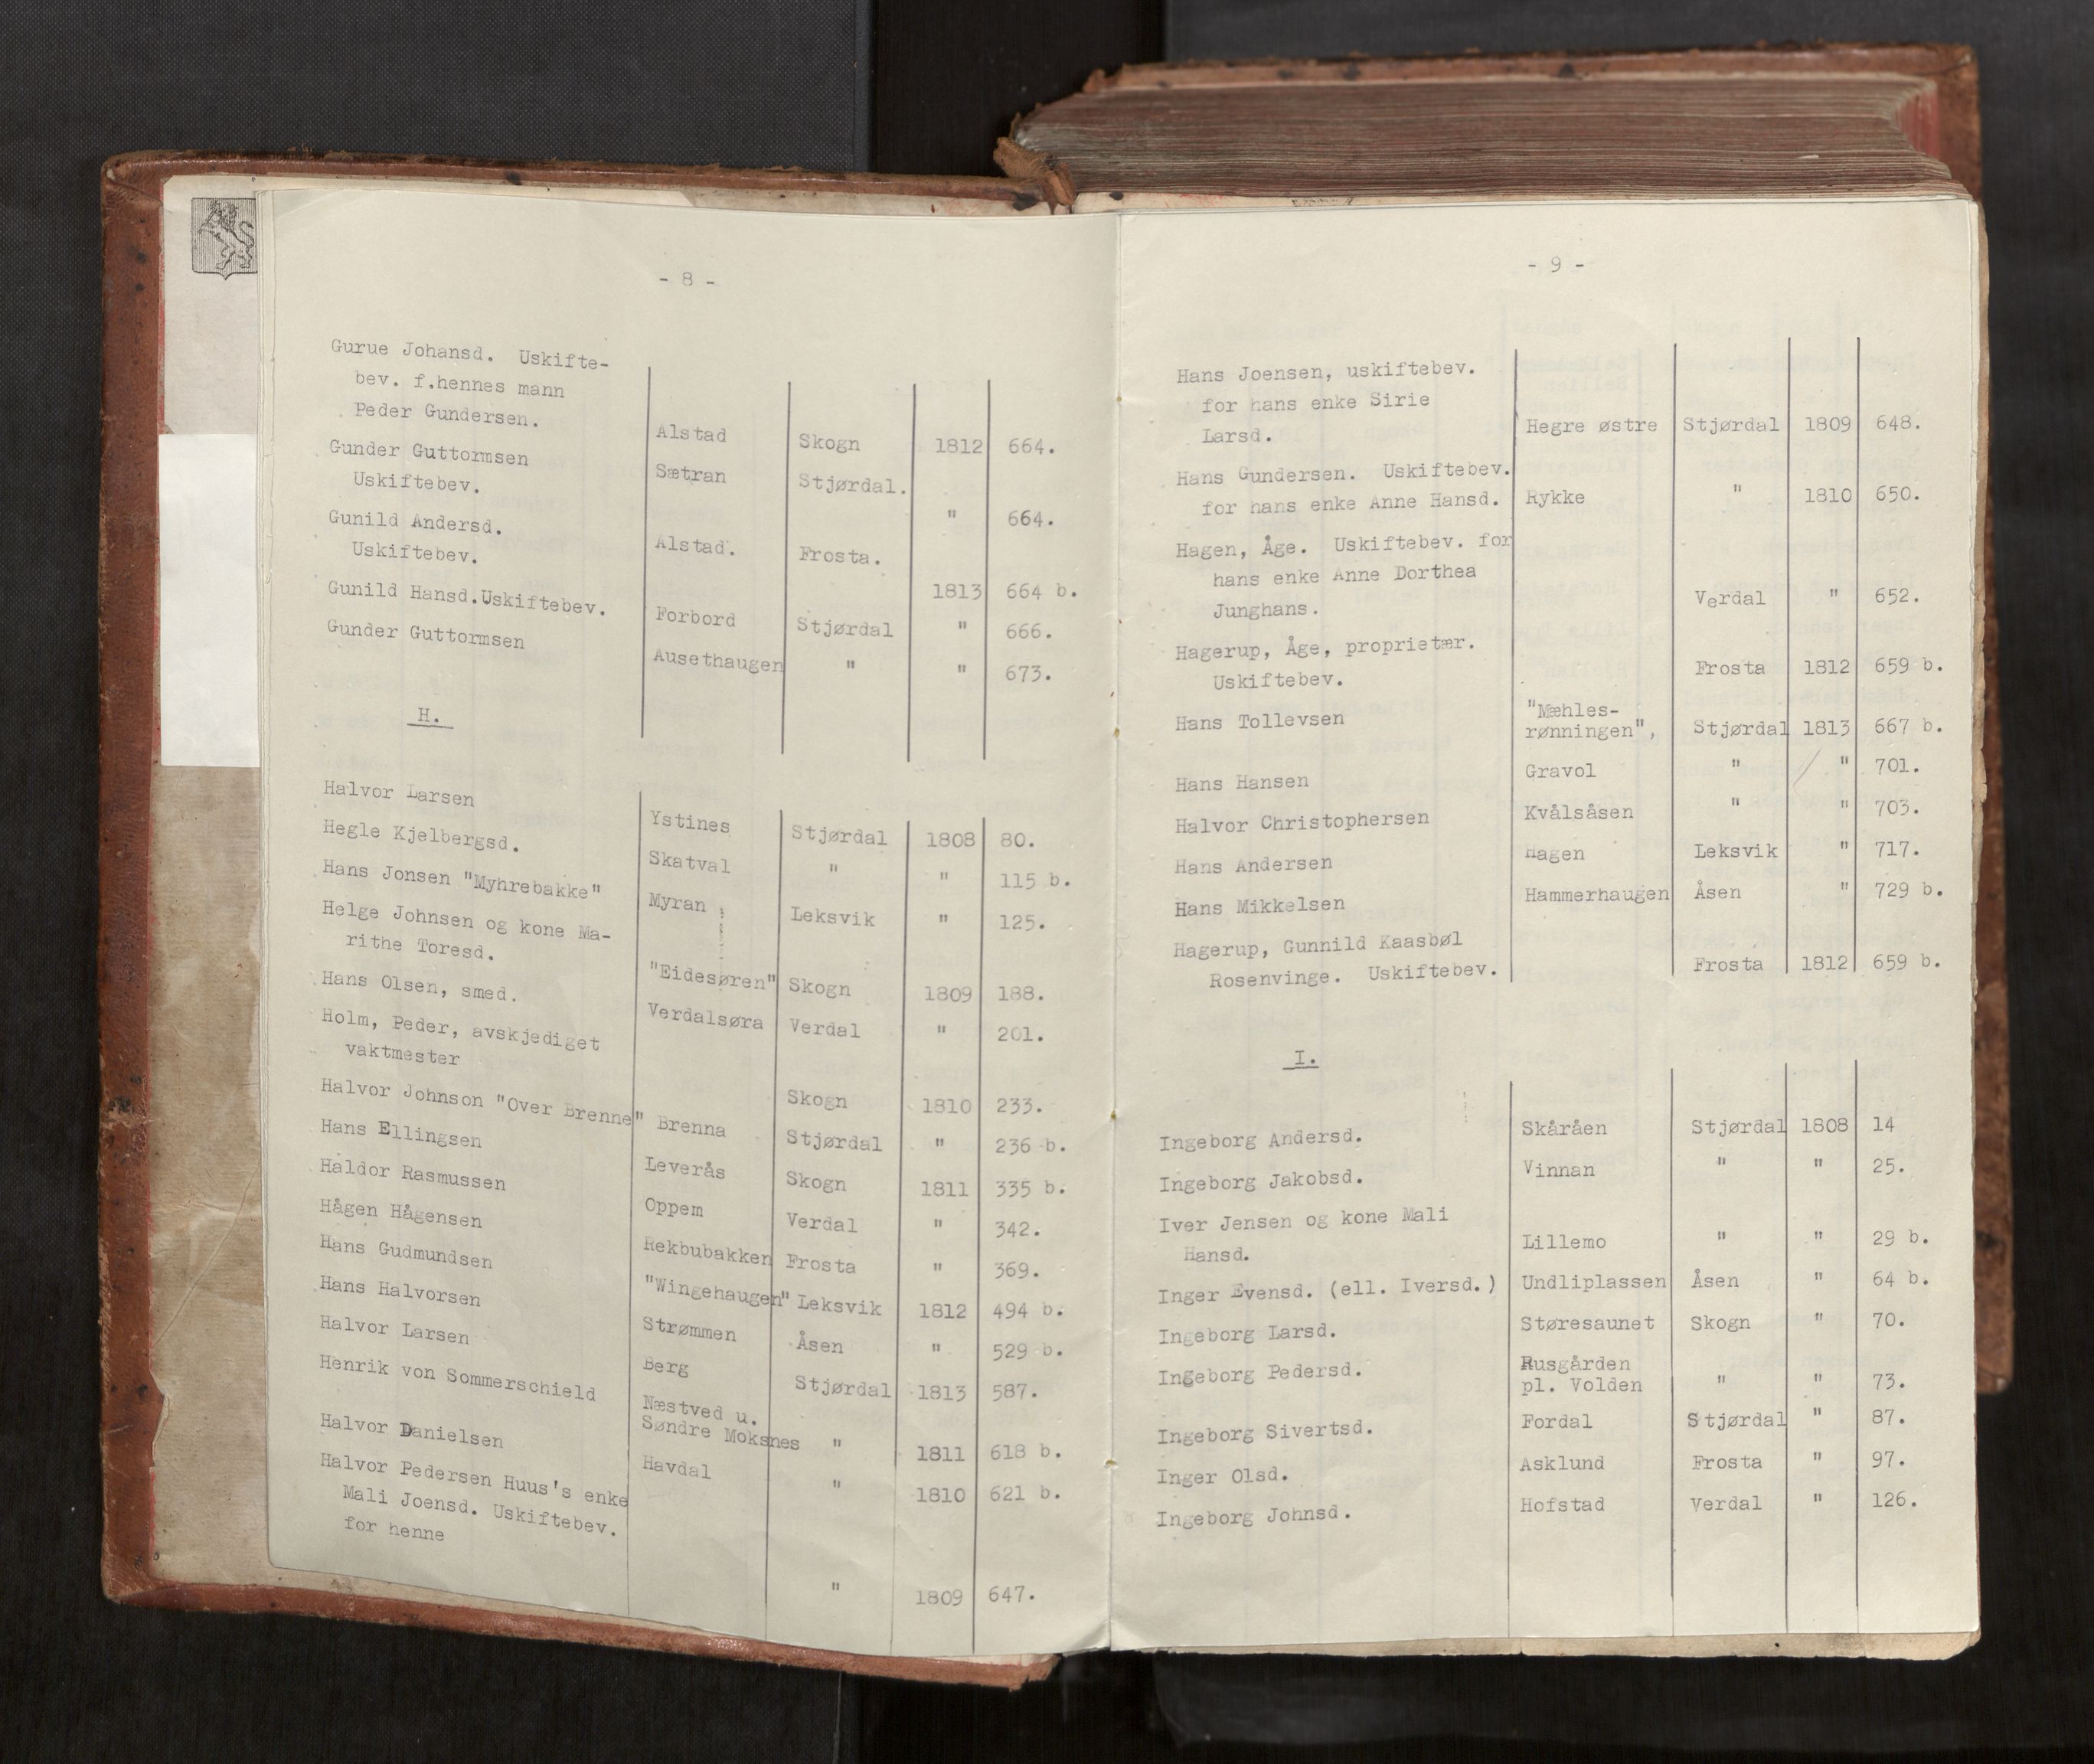 - 8 -
Gurue Johansd. Uskifte-
bev. f.hennes mann
Peder Gundersen. Alstad Skogn 1812 664.
Gunder Guttormsen
Uskiftebev. Sætran Stjørdal. " 664.
Gunild Andersd.
Uskiftebev. Alstad. Frosta. 1813 664 b.
Gunild Hansd.Uskiftebev. Forbord Stjørdal " 666.
Gunder Guttormsen Ausethaugen " " 673.
H.
Halvor Larsen Ystines Stjørdal 1808 80.
Hegle Kjelbergsd. Skatval " " 115 b.
Hans Jonsen "Myhrebakke" Myran Leksvik " 125.
Helge Johnsen og kone Ma-
rithe Toresd. "Eidesøren" Skogn 1809 188.
Hans Olsen, smed. Verdalsøra Verdal " 201.
Holm, Peder, avskjediget
vaktmester Skogn 1810 233.
Halvor Johnson "Over Brenne" Brenna Stjørdal " 236 b.
Hans Ellingsen Leverås Skogn 1811 335 b.
Haldor Rasmussen Oppem Verdal " 342.
Hågen Hågensen Rekbubakken Frosta " 369.
Hans Gudmundsen "Wingehaugen" Leksvik 1812 494 b.
Hans Halvorsen Strømmen Åsen " 529 b.
Halvor Larsen Berg Stjørdal 1813 587.
Henrik von Sommerschield Næstved u.
Søndre Moksnes " 1811 618 b.
Halvor Danielsen Havdal " 1810 621 b.
Halvor Pedersen Huus's enke
Mali Joensd. Uskiftebev.
for henne " 1809 647.
- 9 -
Hans Joensen, uskiftebev.
for hans enke Sirie
Larsd. Hegre østre Stjørdal 1809 648.
Hans Gundersen. Uskiftebev.
for hans enke Anne Hansd. Rykke " 1810 650.
Hagen, Åge. Uskiftebev. for
hans enke Anne Dorthea
Junghans. Verdal " 652.
Hagerup, Åge, proprietær.
Uskiftebev. Frosta 1812 659 b.
Hans Tollevsen "Mæhles-
rønningen", Stjørdal 1813 667 b.
Hans Hansen Gravol " " 701.
Halvor Christophersen Kvålsåsen " " 703.
Hans Andersen Hagen Leksvik " 717.
Hans Mikkelsen Hammerhaugen Åsen " 729 b.
Hagerup, Gunnild Kaasbøl
Rosenvinge. Uskiftebev. Frosta 1812 659 b.
I.
Ingeborg Andersd. Skåråen Stjørdal 1808 14
Ingeborg Jakobsd. Vinnan " " 25.
Iver Jensen og kone Mali
Hansd. Lillemo " " 29 b.
Inger Evensd. (ell. Iversd.) Undliplassen Åsen " 64 b.
Ingeborg Larsd. Støresaunet Skogn " 70.
Ingeborg Pedersd. Rusgården
pl. Volden " " 73.
Ingeborg Sivertsd. Fordal Stjørdal " 87.
Inger Olsd. Asklund Frosta " 97.
Ingeborg Johnsd. Hofstad Verdal " 126.